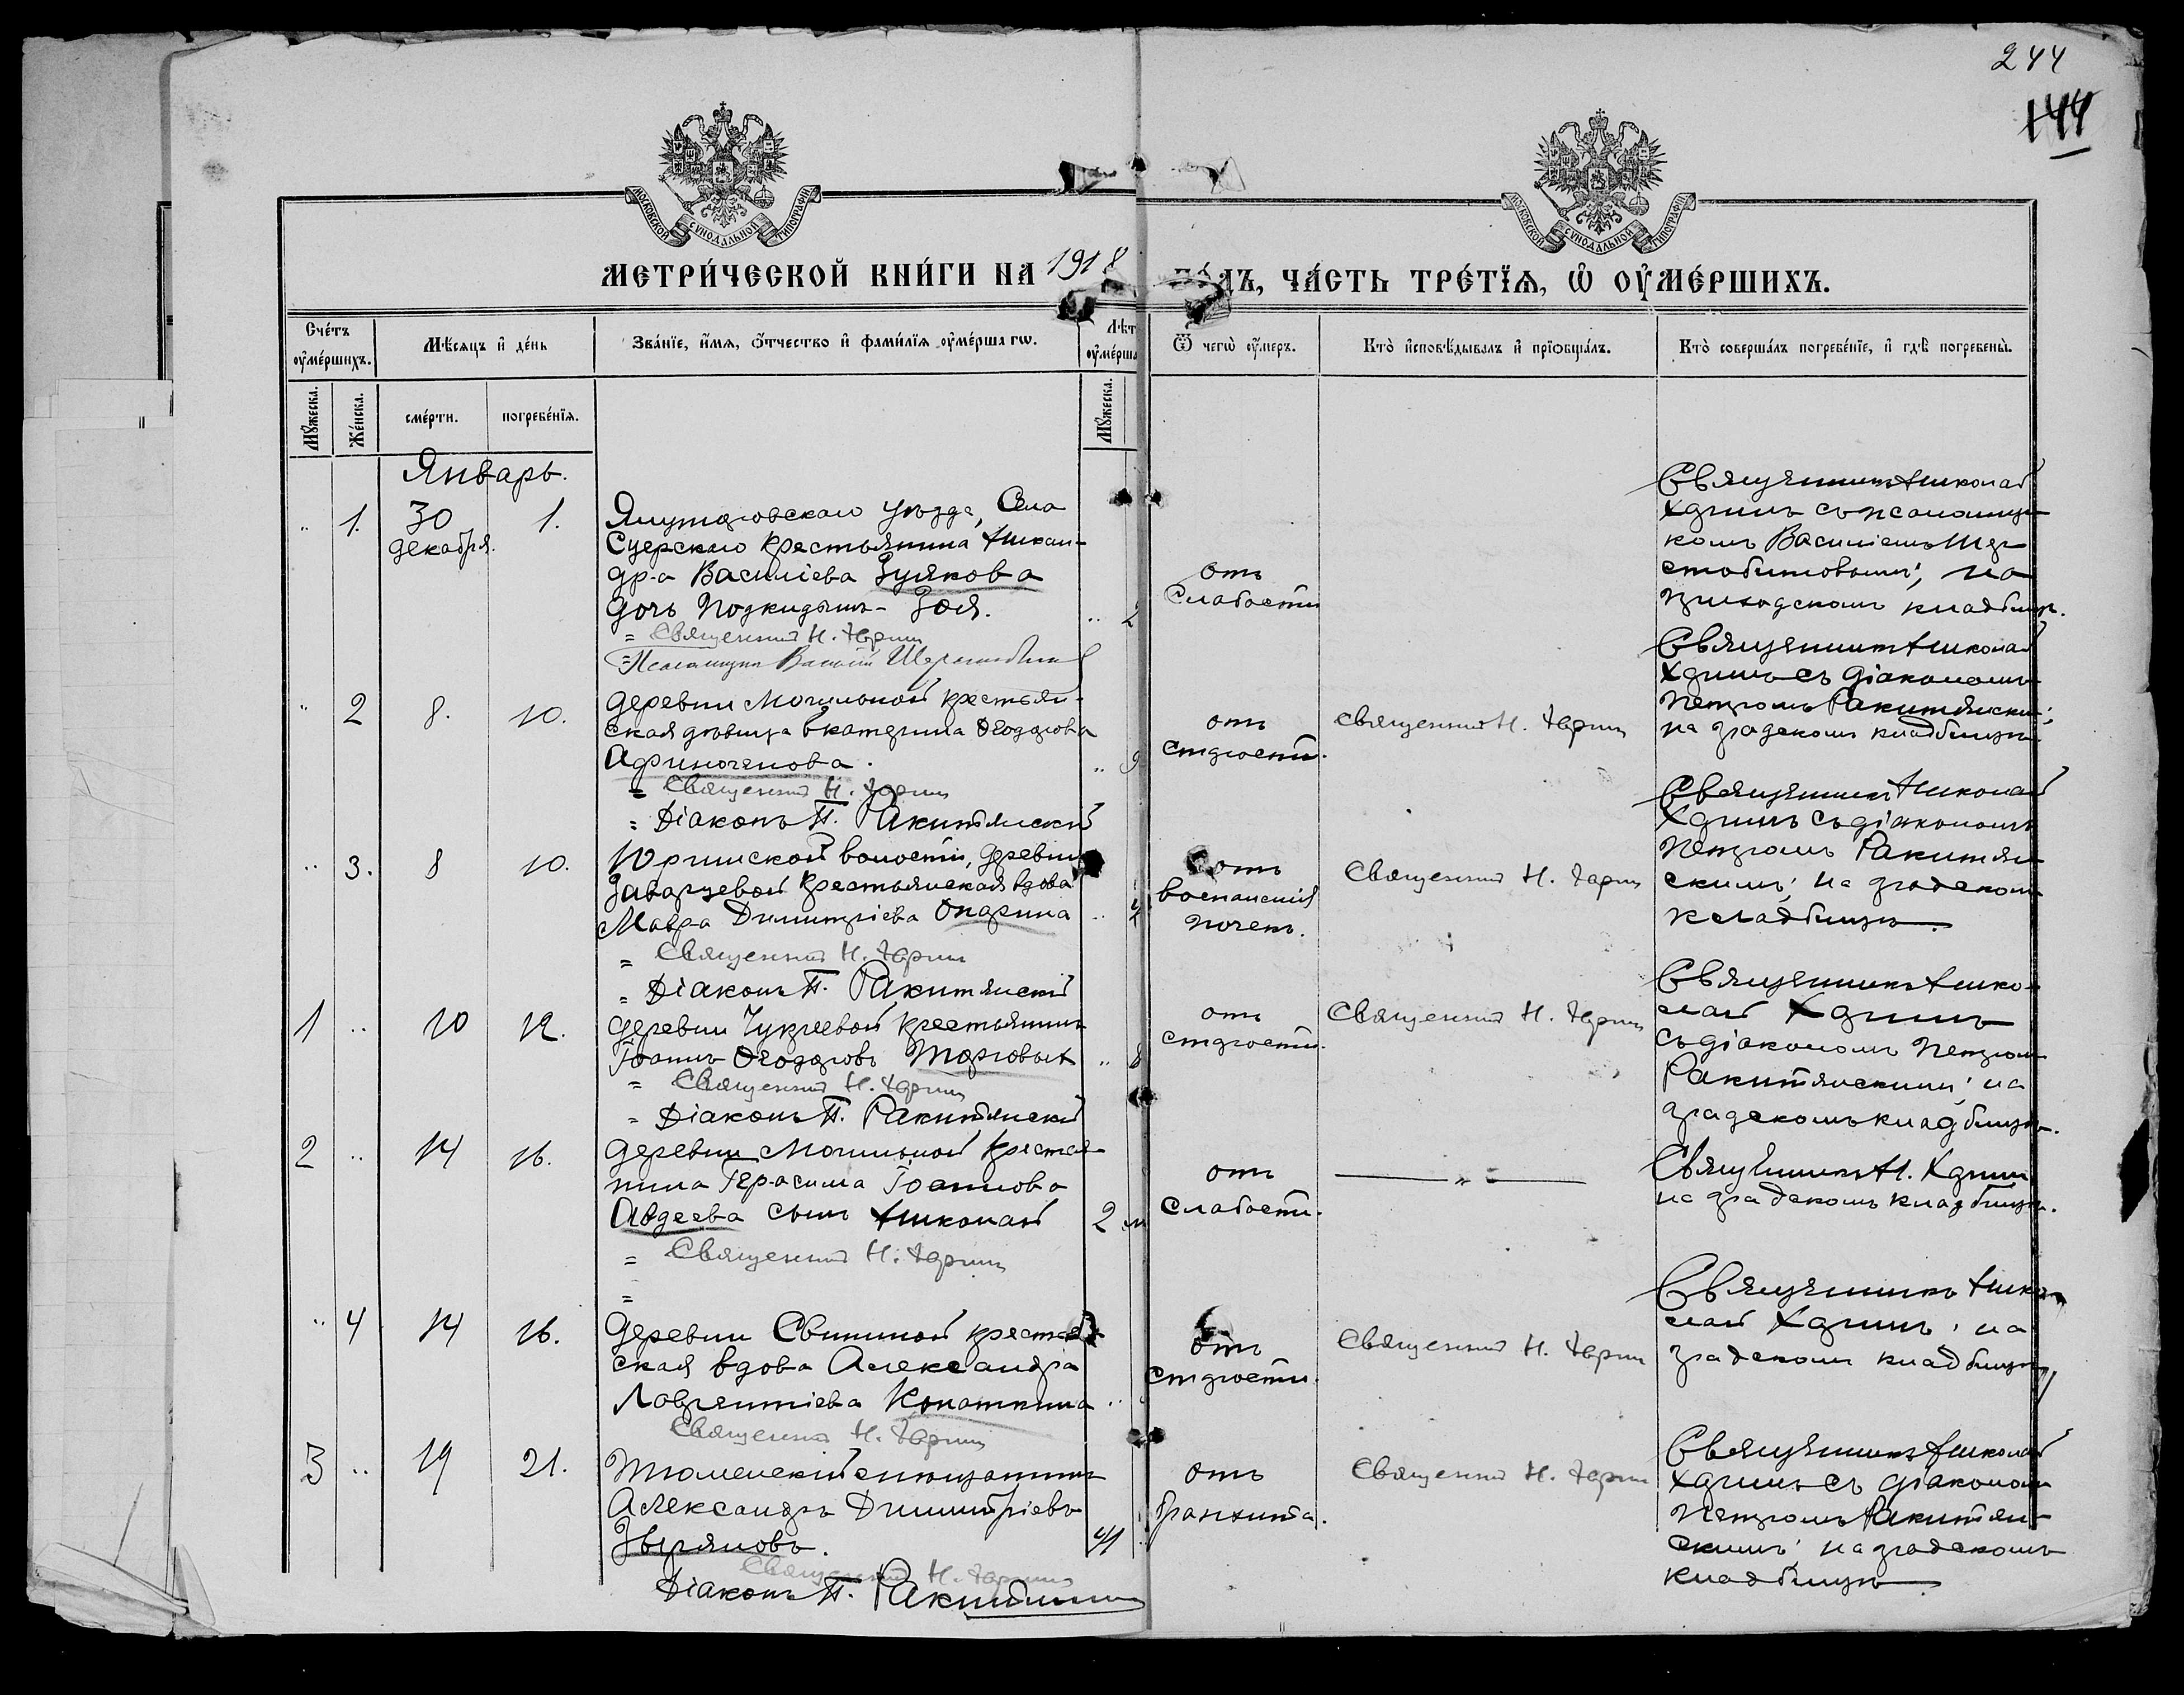 244
144
МОСКОВСКОЙ СУНОДАЛЬНОЙ ТИПОГРАФІИ
МОСКОВСКОЙ СУНОДАЛЬНОЙ ТИПОГРАФІИ
МЕТРИ́ЧЕСКОЙ КНИ́ГИ НА 1918 ГО́ДЪ, ЧА́СТЬ ТРЕ́ТЇѦ, Ѡ҆ ОУ҆МЕ́РШИХЪ.
Сче́тъ оу҆ме́ршихъ.
Мѣ́сяцъ и҆ де́нь
Зва́нїе, и҆́мѧ, ѻ҆́тчество и҆ фами́лїѧ оу҆ме́ршагѡ.
Лѣт
оу҆ме́рша
Ѿ чегѡ̀ оу҆́меръ.
Кто̀ и҆сповѣ́дывалъ и҆ прїѡбща́лъ.
Кто̀ соверша́лъ погребе́нїе, и҆ гдѣ̀ погребены̀.
Мꙋ́жеска.
Же́нска.
сме́рти.
погребе́нїѧ.
Мꙋ́жеска.
Январь.
" 1. 30 декабря. 1.
Ялуторовскаго уѣзда, Села
Суерскаго крестьянина Никан-
дра Василіева Зуякова
дочь подкидышъ - Зоя. " 2
= Священникъ Н. Хоринъ
= Псаломщикъ Василій
отъ
слабости
Священникъ Николай
Хоринъ съ псаломщи-
комъ Василіемъ Шер-
стобитовымъ; на
приходскомъ кладбищѣ.
" 2 8. 10.
деревни Могильной крестьян-
ская дѣвица Екатерина Ѳеодорова
Афиногенова. " 9
= Священникъ Н. Хоринъ
= Діаконъ П. Ракитянскій
отъ
старости.
Священникъ Н. Хоринъ
Священникъ Николай
Хоринъ съ діакономъ
Петромъ Ракитянскимъ;
на градскомъ кладбищѣ.
" 3. 8 10.
Юргинской волости, деревни
крестьянская вдова
Мавра Димитріева Ондрина "
= Священникъ Н. Хоринъ
= Діаконъ П. Ракитянскій
отъ
воспаленія
почекъ.
Священникъ Н. Хоринъ
Священникъ Николай
Хоринъ съ діакономъ
Петромъ Ракитян-
скимъ; на градскомъ
кладбищѣ.
1 " 10 12.
деревни Чукреевой крестьянинъ
Іоаннъ Ѳеодоровъ Торговыхъ " 8
= Священникъ Н. Хоринъ
= Діаконъ П. Ракитянскій
отъ
старости.
Священникъ Н. Хоринъ
Священникъ Нико-
лай Хоринъ
съ діакономъ Петромъ
Ракитянскимъ; на
градскомъ кладбищѣ.
2 " 14 16.
деревни Могильной крестья-
нина Герасима Іоаннова
Авдеева сынъ Николай 2 м
= Священникъ Н. Хоринъ
=
отъ
слабости.
— " —
Священникъ Н. Хоринъ
на градскомъ кладбищѣ.
" 4 14 16.
деревни Свининой крестьян-
ская вдова Александра
Лаврентіева Копоткина "
Священникъ Н. Хоринъ
отъ
старости.
Священникъ Н. Хоринъ
Священникъ Нико-
лай Хоринъ; на
градскомъ кладбищѣ
3 " 19 21.
Тюменскій мѣщанинъ
Александръ Димитріевъ
Звѣряновъ. 41
Священникъ Н. Хоринъ
Діаконъ П. Ракитянскій
отъ
бронхита.
Священникъ Н. Хоринъ
Священникъ Николай
Хоринъ съ діакономъ
Петромъ Ракитян-
скимъ; на градскомъ
кладбищѣ.